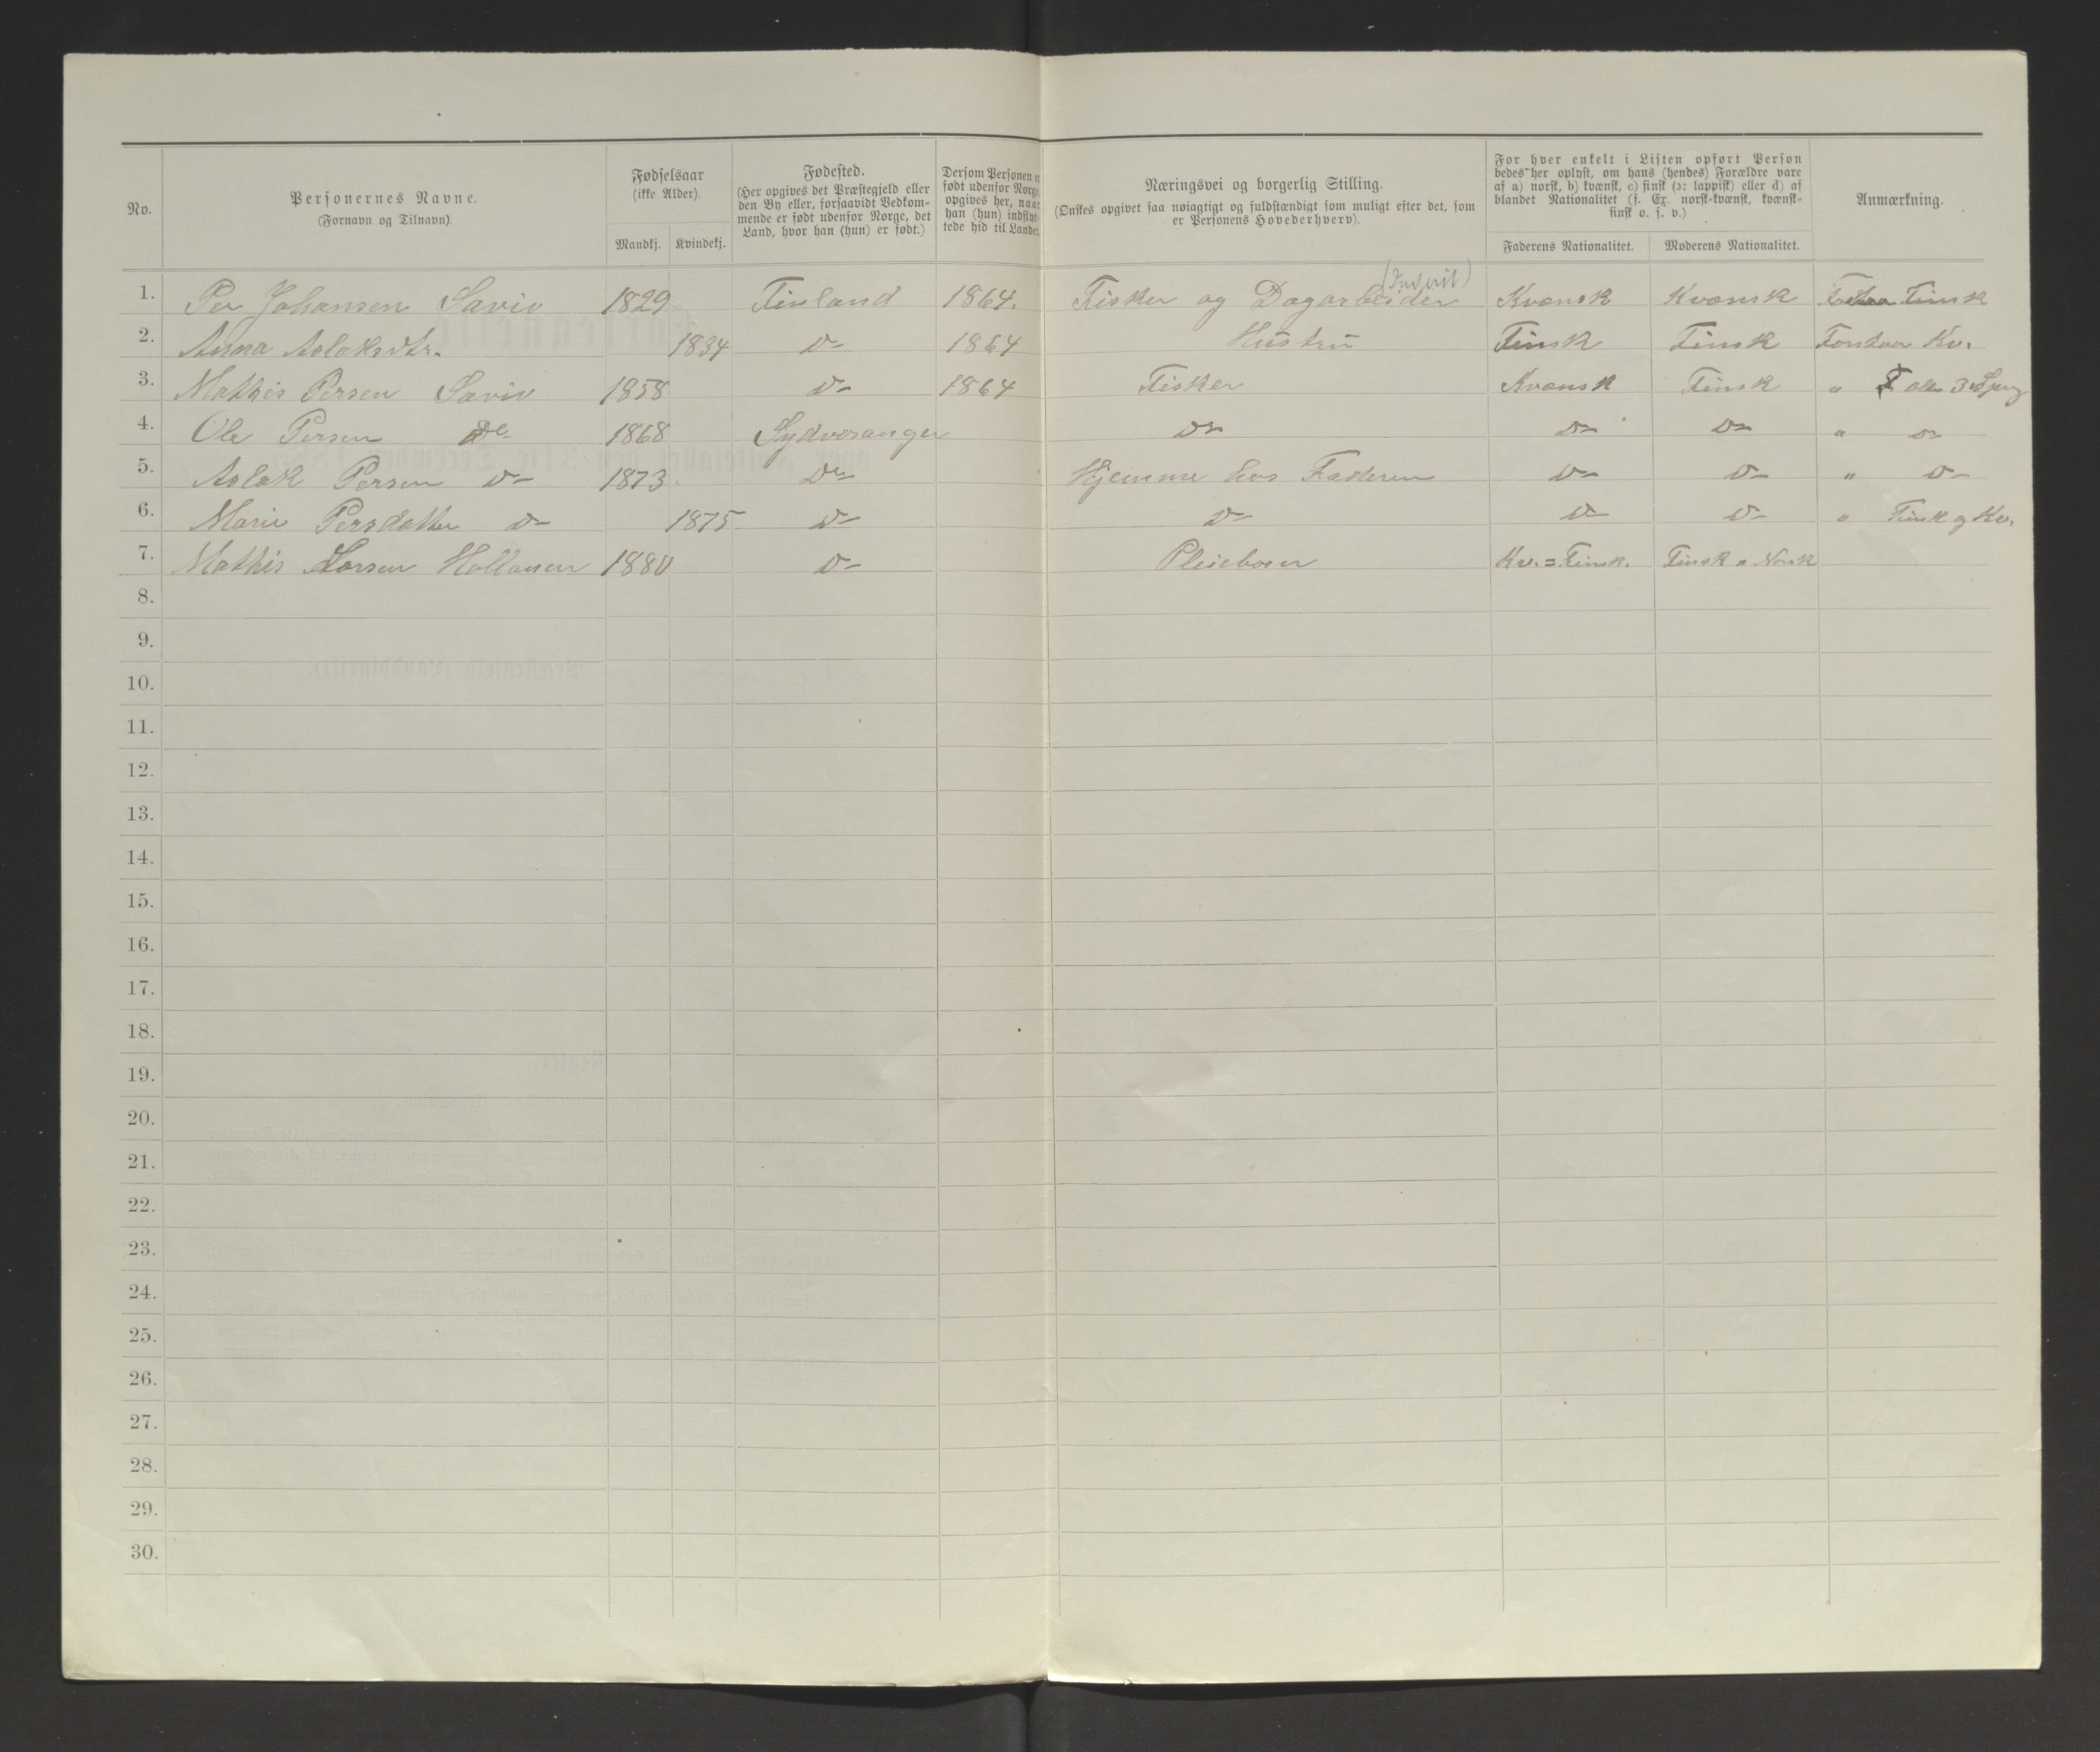 No.
Personernes Navne.
(Fornavn og Tilnavn).
Fødselsaar
(ikke Alder).
Mandkj. Kvindekj.
Fødested.
(Her opgives det Præstegjeld eller
den By eller, forsaavidt Vedkom-
mende er født udenfor Norge, det
Land, hvor han (hun) er født.)
Dersom Personen er
født udenfor Norge,
opgives her, naar
han (hun) indflyt-
tede hid til Landet.
Næringsvei og borgerlig Stilling.
(Ønskes opgivet saa nøiagtigt og fuldstændigt som muligt efter det, som
er Personens Hovederhverv).
For hver enkelt i Listen opført Person
bedes her oplyst, om hans (hendes) Forældre vare
af a) norsk, b) kvænsk, c) finsk (ɔ: lappisk) eller d) af
blandet Nationalitet (f. Ex. norsk-kvænsk, kvænsk-
finsk o. s. v.)
Faderens Nationalitet. Moderens Nationalitet.
Anmærkning.
1. Per Johansen Savio 1829 Finland 1864. Fisker og Dagarbeider Kvænsk Kvænsk Finsk
2. Anna Aslaksdtr. 1834 Do 1864 Hustru Finsk Finsk Forstaar Kv.
3. Mathis Persen Savio 1858 Do 1864 Fisker Kvænsk Finsk " alle 3 Sprog
4. Ole Persen Do 1868 Sydvaranger Do Do Do " Do
5. Aslak Persen Do 1873 Do Hjemme hos Faderen Do Do " Do
6. Marie Persdatter Do 1875 Do Do Do Do " Finsk og Kv.
7. Mathis Larsen Hallonen 1880 Do Pleiebarn Kv. = Finsk. Finsk = Norsk
8.
9.
10.
11.
12.
13.
14.
15.
16.
17.
18.
19.
20.
21.
22.
23.
24.
25.
26.
27.
28.
29.
30.